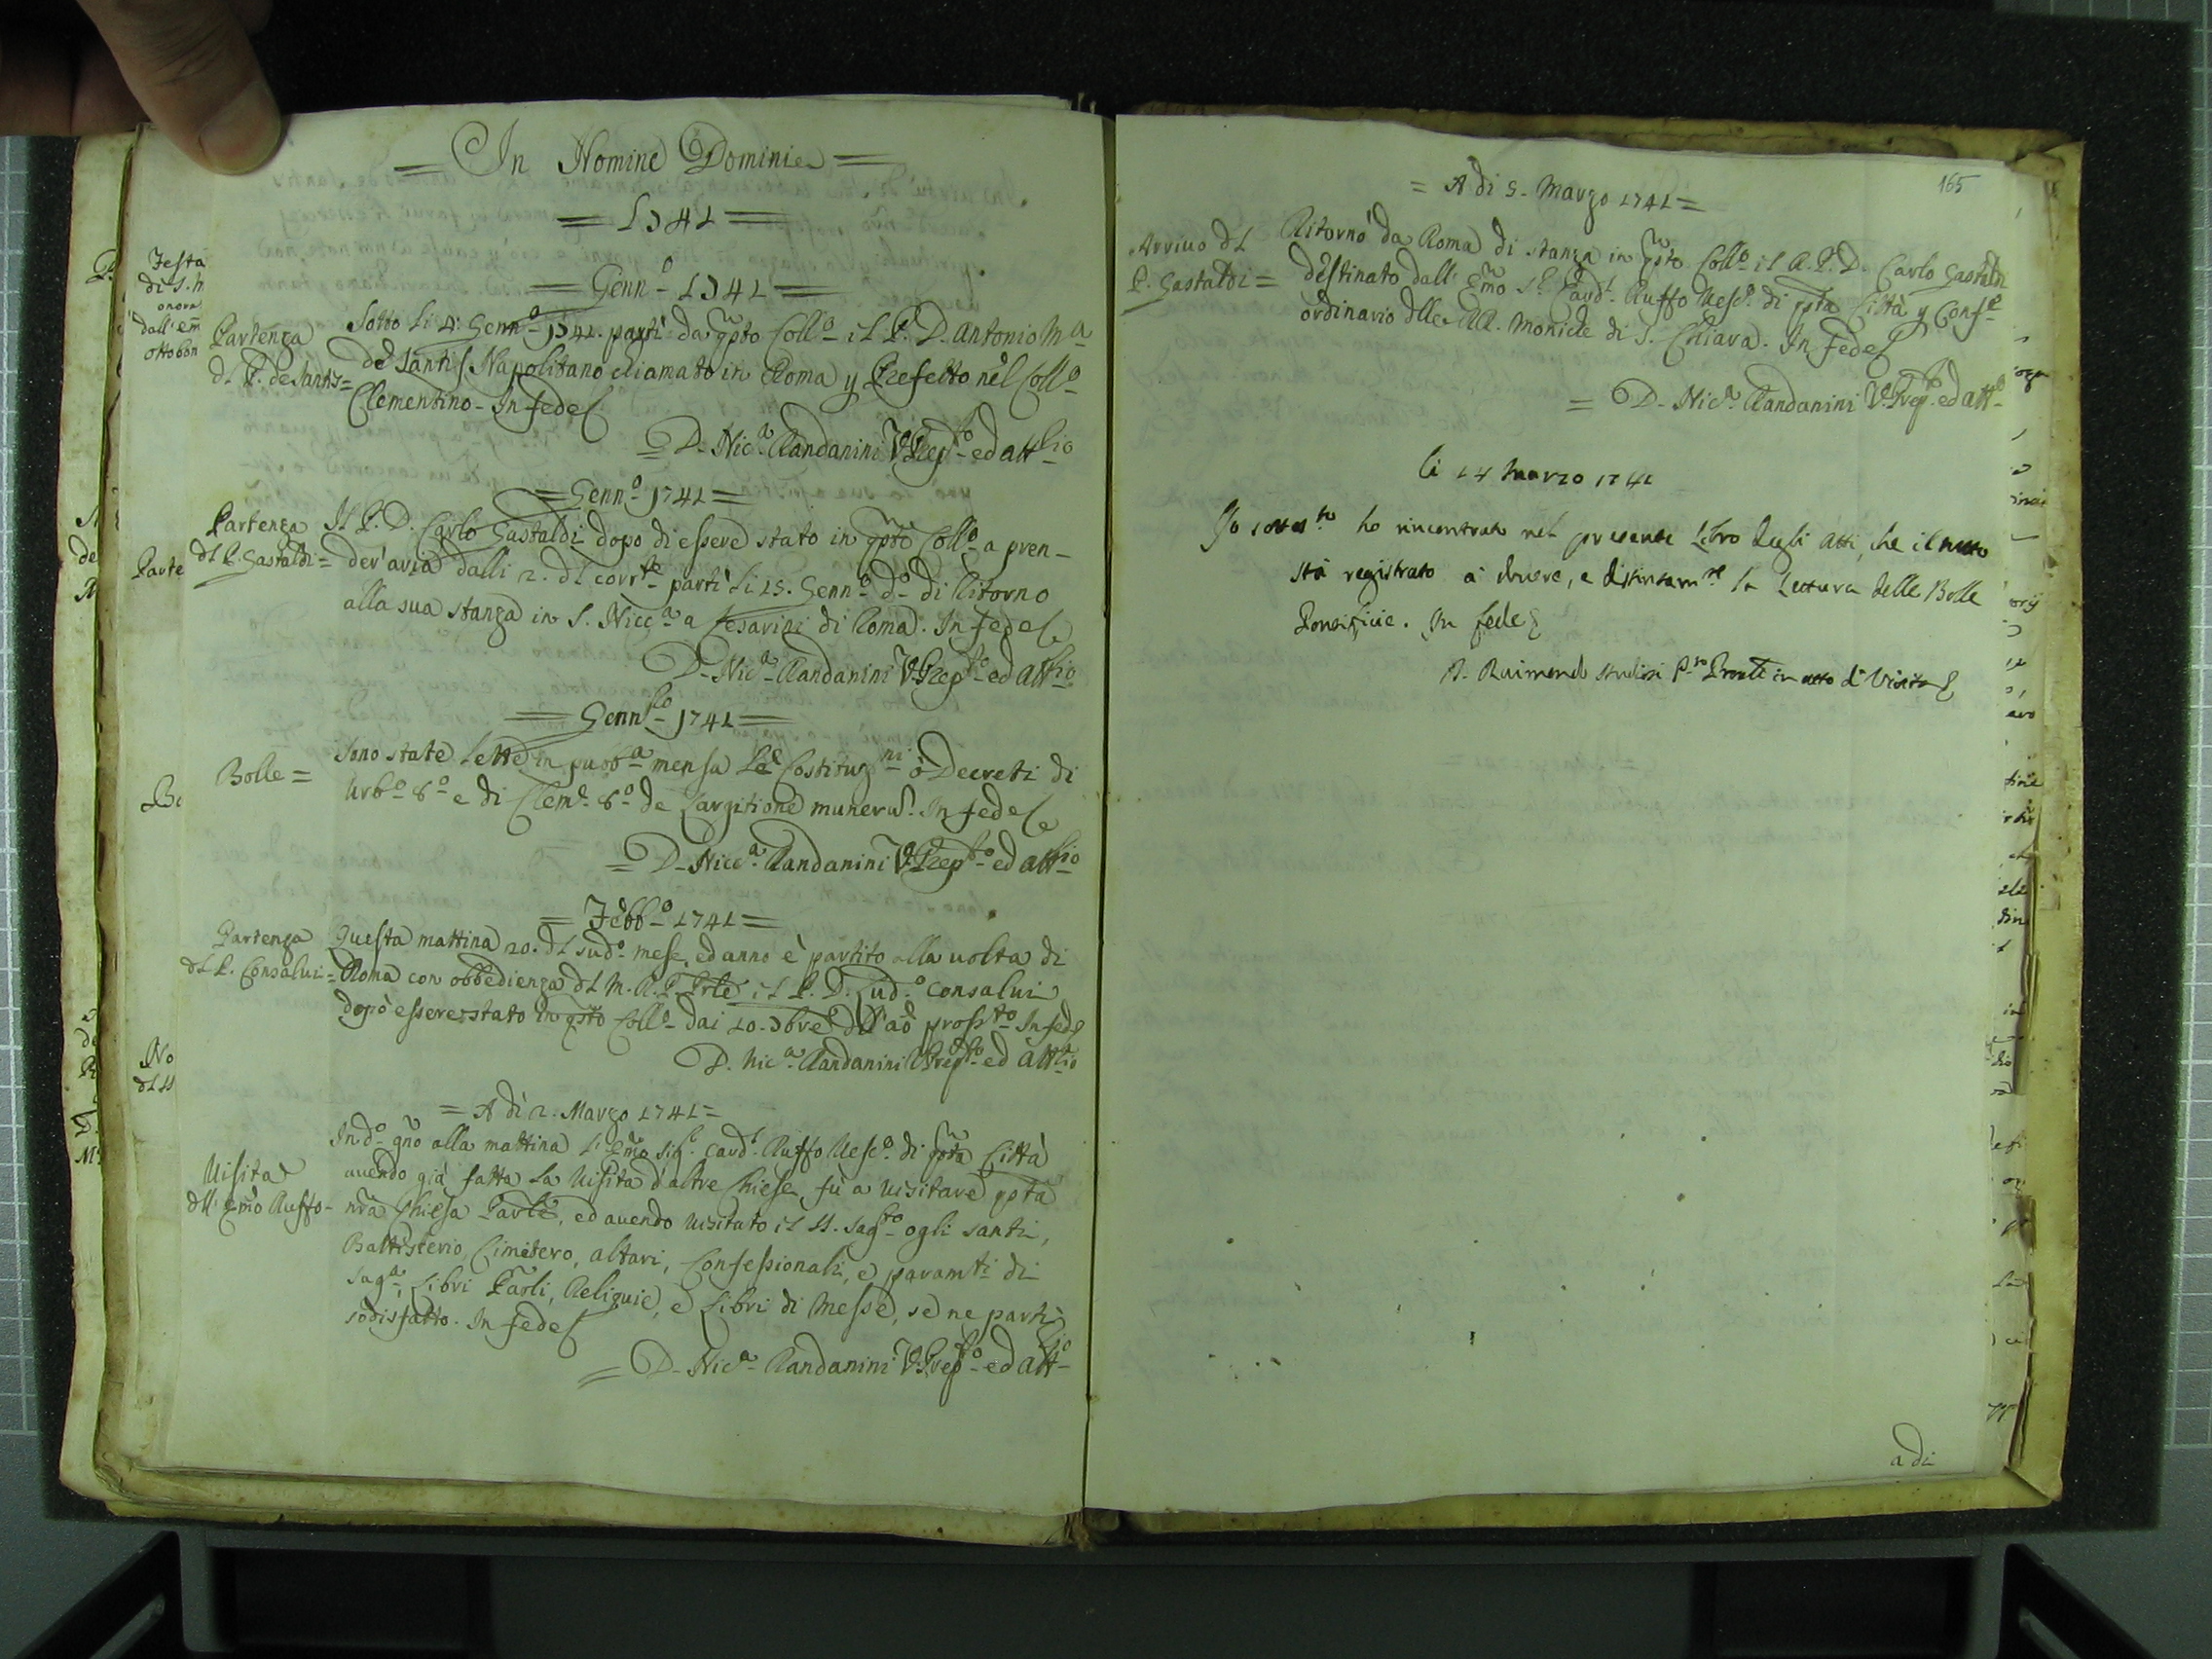 = In Nomine Dominie =
= 1741 =
= Genn.o 1741 =
Partenza
d'l P. de Santis =
Sotto li 4. Genn.o 1741. partì da q̃sto Coll.o il P. D. Antonio M.a
de Santis Napolitano chiamato in Roma p Prefetto nel Coll.o
Clementino. In fede
= D. Nic.a Randanini V.Prep.to ed att.rio
= Genn.o 1741 =
Partenza
d'l P. Gastaldi =
Il P. D. Carlo Gastaldi dopo di essere stato in q̃sto Coll.o a pren-
der' aria dalli 2. d'l corr.te partì li 15. Genn.o d.o di Ritorno
alla sua stanza in S. Nicc.a a Cesarini di Roma. In fede
D. Nic.a Randanini V.Prep.to ed att.rio
= Genn.ro 1741 =
Bolle =
Sono state lette in pubb.a mensa le Costituz.ni o Decreti di
Urb.o 8.o e di Clem.e 8.o de Largitione muneru. In fede
= D. Nicc.a Randanini V.Prep.to ed att.rio
= Febb.o 1741 =
Partenza
d'l P. Consalvi =
Questa mattina 20. d'l sud.o mese, ed anno è partito alla volta di
Roma con obbedienza d'l M. R. P. Prle il P. D. Lud.o Consalvi
dopo essere stato in q̃sto Coll.o dai 10. 9bre dll' año pross.to In fede
D. Nic.a Randanini V.Prep.to ed att.rio
= A dì 2. Marzo 1741 =
Visita
dll' Em̃o Ruffo -
In d.o gño alla mattina l' Em̃o Sig.r Card.l Ruffo Vesc.o di q̃sta Città
avendo già fatta la Visita d'altre Chiese, fù a visitare q̃sta
nr̃a Chiesa Parle, ed avendo visitato il SS. Sag.to ogli santi,
Battisterio, Cimitero, altari, Confessionali, e paramti di
sag.a, Libri Parli, Reliquie, e Libri di Messe, se ne partì
sodisfatto. In fede
= D. Nic.a Randanini V.Prep.to ed att.rio
165
= A dì 5. Marzo 1741 =
Arrivo d'l
P. Gastaldi =
Ritornò da Roma di stanza in q̃sto Coll.o il R. P. D. Carlo Gastaldi
destinato dall' Em̃o S.r Card.l Ruffo Vesc.o di q̃sta Città p Conf.e
ordinario dlle RR. Moniche di S. Chiara. In fede
= D. Nic.a Randanini V.Prep.to ed att.rio
li 14 Marzo 1741
Io sotto.to ho rincontrato nel presente Libro degli Atti, che il tutto
stà registrato a dovere, e distintam.te la Lettura delle Bolle
Pontificie. In fede
D. Raimondo Studiosi P.ro Proule in atto di Visita
a di